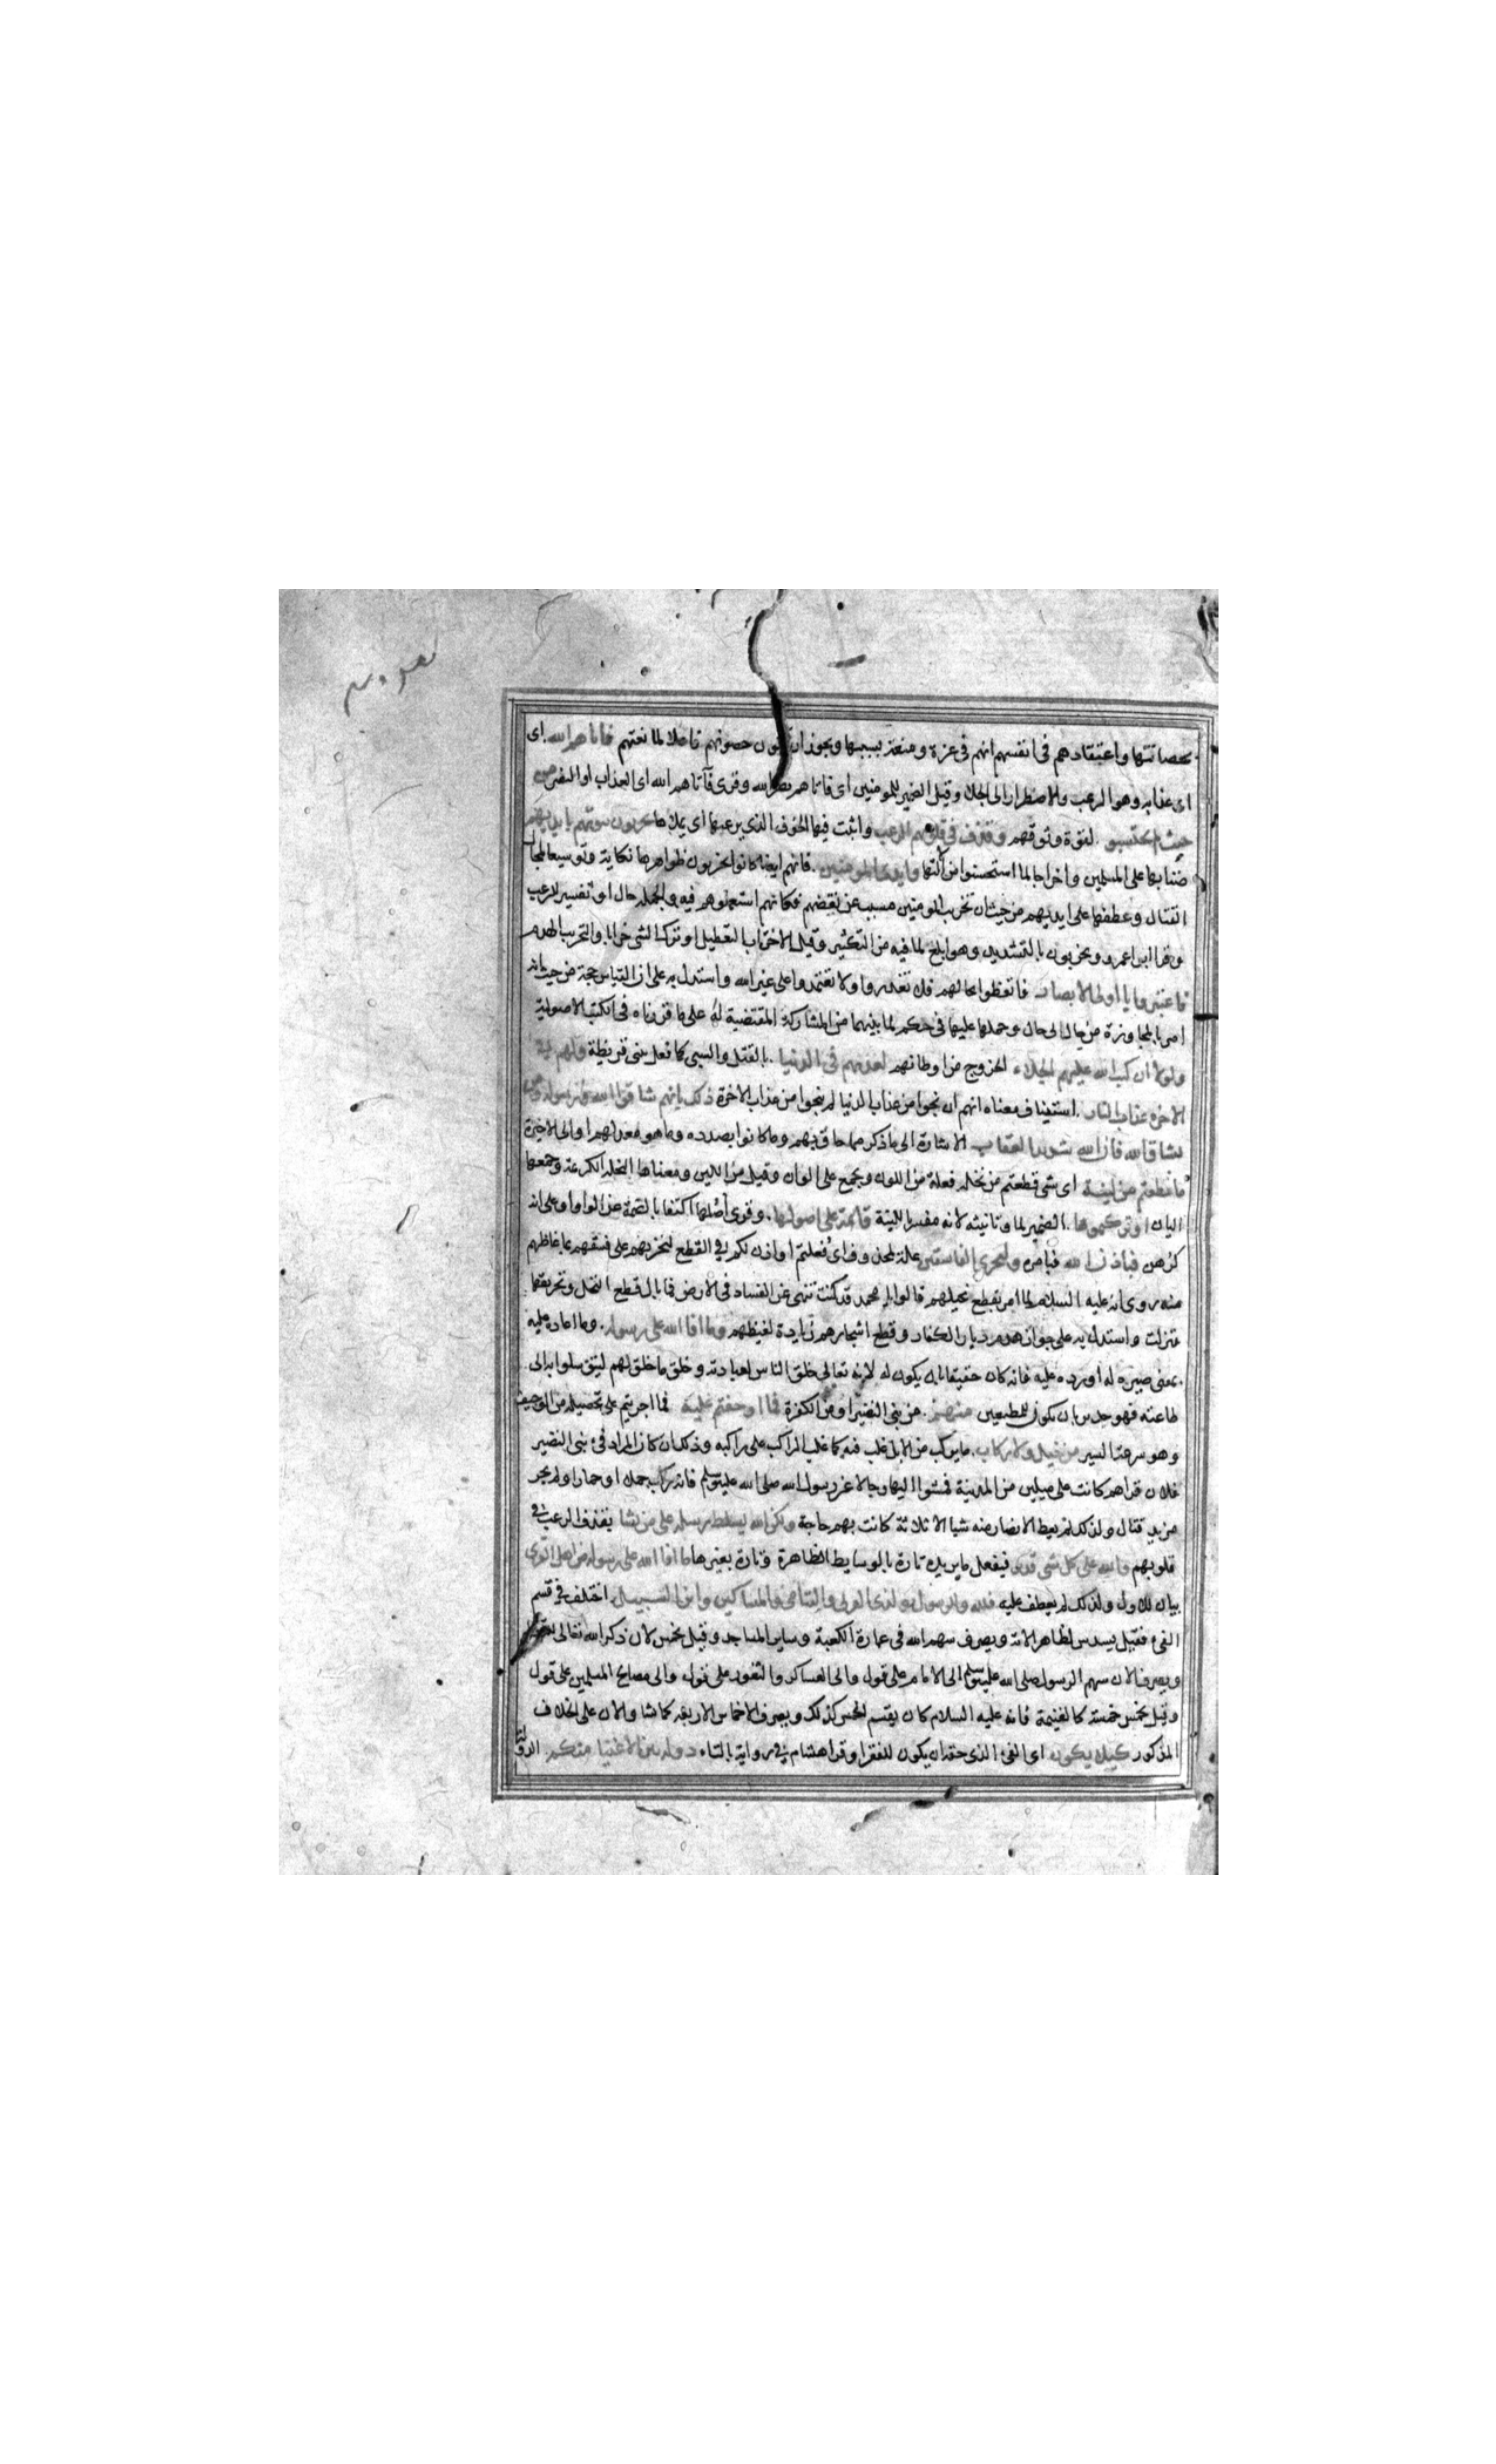 بحصانتها واعتقادهم فى انفسهم انهم فى عزة ومنعة بسببها ويجوز ان تكون حصونهم فاعلا لما نعتهم فاتاهم الله اى
اى عذابه وهو الرعب والاضطرار الى الجلا وقيل الضمير للمومنين اى فاتاهم نصر الله وقرى فآتاهم الله اى العذاب او النصر من
حيث لم يحتسبو لقوة وثوقهم وقذف فى قلوبهم الرعب واثبت فيها الخوف الذى يرعبها اى يملاها يخربون بيوتهم بايديهم
ضنا بها على المسلمين واخراجا لما استحسنوا من آلتها وايدى المومنين فانهم ايضا كانوا يخربون ظواهرها نكاية وتوسيعا لمجال
القتال وعطفها على ايديهم من حيث ان تخريب المومنين مسبب عن نقضهم فكانهم استعملوهم فيه والجملة حال او تفسير للرعب
وقرا ابو عمرو ويخربون بالتشديد وهو ابلغ لما فيه من التكثير وقيل الاخراب التعطيل او ترك الشى خرابا والتخريب الهدم
فاعتبروا يا اولى الابصار فاتعظوا بحالهم فلا تغدروا ولا تعتمدوا على غير الله واستدل به على ان القياس حجة من حيث انه
امر بالمجاوزة من حال الى حال وحملها عليها فى حكم لما بينهما من المشاركة المقتضية له على ما قررناه فى الكتب الاصولية
ولولا ان كتب الله عليهم الجلاء الخروج من اوطانهم لعذبهم فى الدنيا بالقتل والسبى كما فعل ببنى قريظة ولهم فى
الاخره عذاب النار استيناف معناه انهم ان نجوا من عذاب الدنيا لم ينجوا من عذاب الاخرة ذلك بانهم شاقوا الله ورسوله ومن
يشاق الله فان الله شديد العقاب الاشارة الى ما ذكر مما حاق بهم وما كانوا بصدده وما هو معد لهم او الى الاخيرة
ما قطعتم من لينة اى شى قطعتم من نخلة فعلة من اللون ويجمع على الوان وقيل من اللين ومعناها النخلة الكريمة وجمعها
اليان او تركتموها الضمير لما وتانيثه لانه مفسر باللينة قائمة على اصولها وقرى اصلها اكتفا بالضمة عن الواو او على انه
كرهن فباذن الله فبامره وليخزى الفاسقين علة لمحذوف اى فعلتم او اذن لكم فى القطع ليخزيهم على فسقهم بما غاظهم
منه روى انه عليه السلام لما امر بقطع نخيلهم قالوا يا محمد قد كنت تنهى عن الفساد فى الارض فما بال قطع النخل وتحريقها
فنزلت واستدل به على جواز هدم ديار الكفار وقطع اشجارهم زيادة لغيظهم وما افا الله على رسوله وما اعاده عليه
بمعنى صيره له او رده عليه فانه كان حقيقا بان يكون له لانه تعالى خلق الناس لعبادته وخلق ما خلق لهم ليتوسلوا به الى
طاعته فهو جدير بان يكون للمطيعين منهم من بنى النضير او من الكفرة فما اوجفتم عليه فما اجريتم على تحصيله من الوجيف
وهو سرعة السير من خيل ولا ركاب ما يركب من الابل غلب فيه كما غلب الراكب على راكبه وذلك ان كان المراد فئ بنى النضير
فلان قراهم كانت على ميلين من المدينة فمشوا اليها رجالا غير رسول الله صلى الله عليه وسلم فانه ركب جملا او حمارا ولم يجر
مزيد قتال ولذلك لم يعط الانصار منه شيا الا ثلاثة كانت بهم حاجة ولكن الله يسلط رسله على من يشا بقذف الرعب فى
قلوبهم والله على كل شى قدير فيفعل ما يريد تارة بالوسايط الظاهرة وتارة بغيرها ما افا الله على رسوله من اهل القرى
بيان للاول ولذلك لم يعطف عليه فلله وللرسول ولذى القربى واليتامى والمساكين وابن السبيل اختلف فى قسم
الفئ فقيل يسدس لظاهر الاية ويصرف سهم الله فى عمارة الكعبة وساير المساجد وقيل يخمس لان ذكر الله تعالى للتعظيم
ويصرف الان سهم الرسول صلى الله عليه وسلم الى الامام على قول والى العساكر والثغور على قول والى مصالح المسلمين على قول
وقيل يخمس خمسة كالغنيمة فانه عليه السلام كان يقسم الخمس كذلك ويصرف الاخماس الاربعة كما شا والان على الخلاف
المذكور كيلا يكون اى الفئ الذى حقه ان يكون للفقرا وقرا هشام فى رواية بالتاء دولة بين الاغنيا منكم